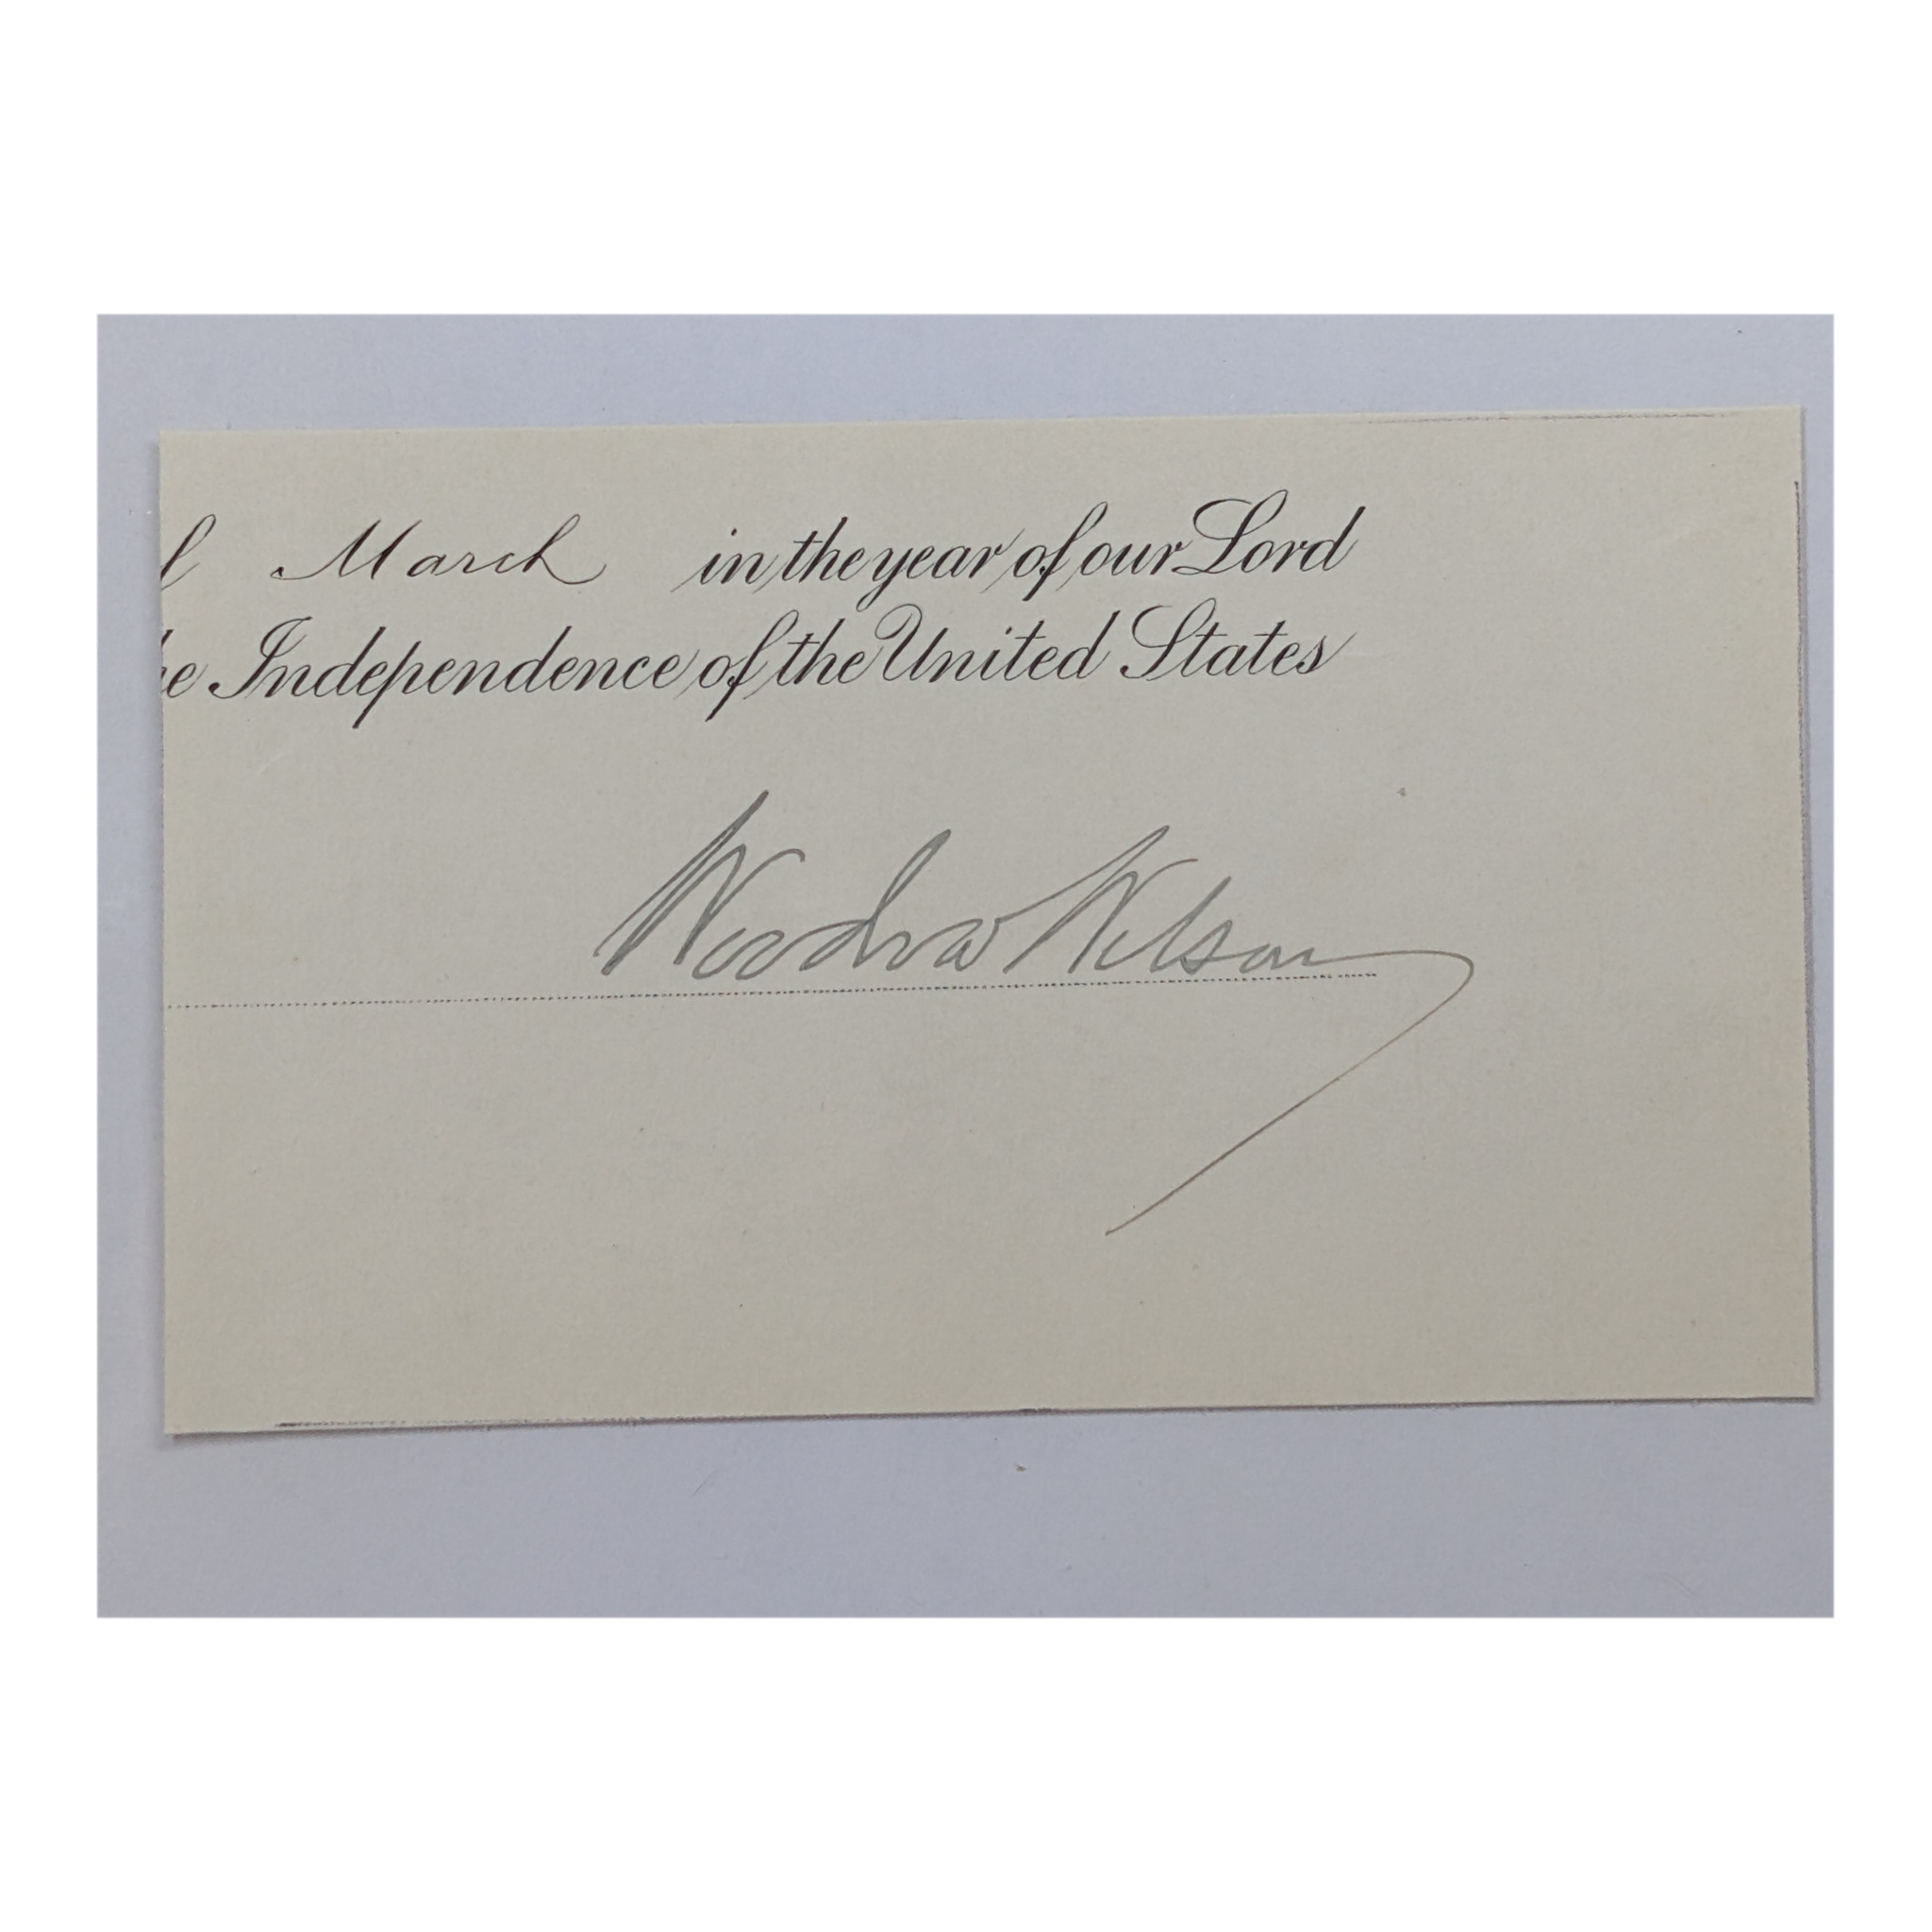 March in the year of our Lord
Independence of the United States
Woodrow Wilson